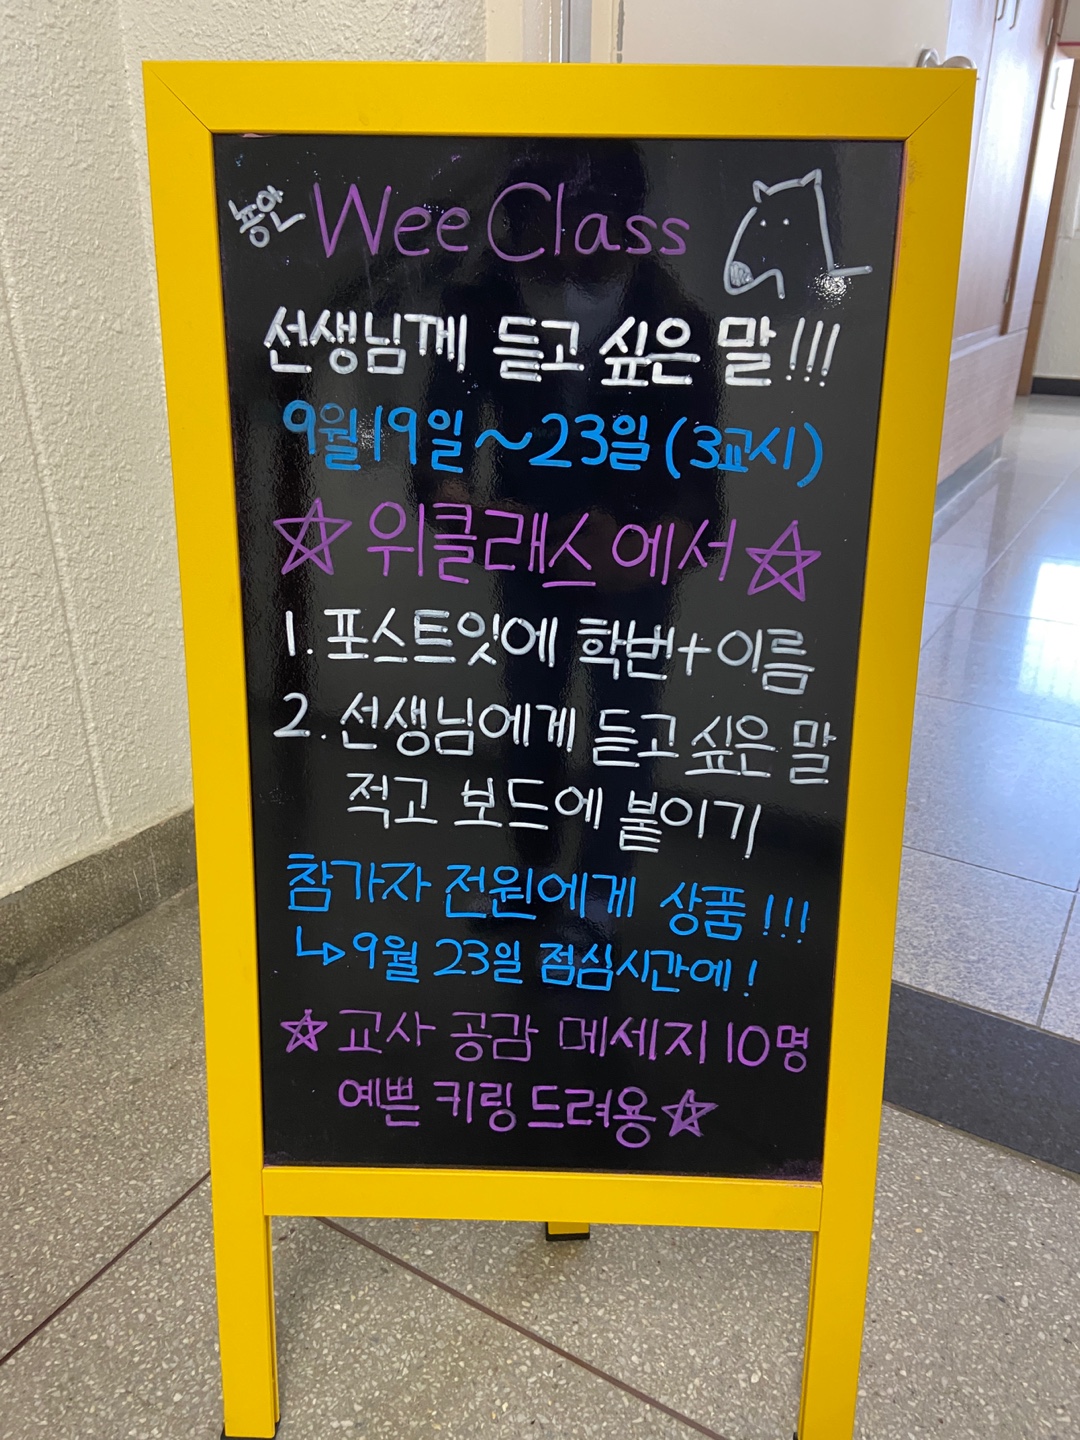 농안 Wee Class
선생님께 듣고 싶은 말!!!
9월19일~23일(3교시)
☆위클래스에서☆
1. 포스트잇에 학번+이름
2. 선생님에게 듣고 싶은 말
적고 보드에 붙이기
참가자 전원에게 상품!!!
↳9월 23일 점심시간에!
☆교사 공감 메세지 10명
예쁜 키링 드려용☆